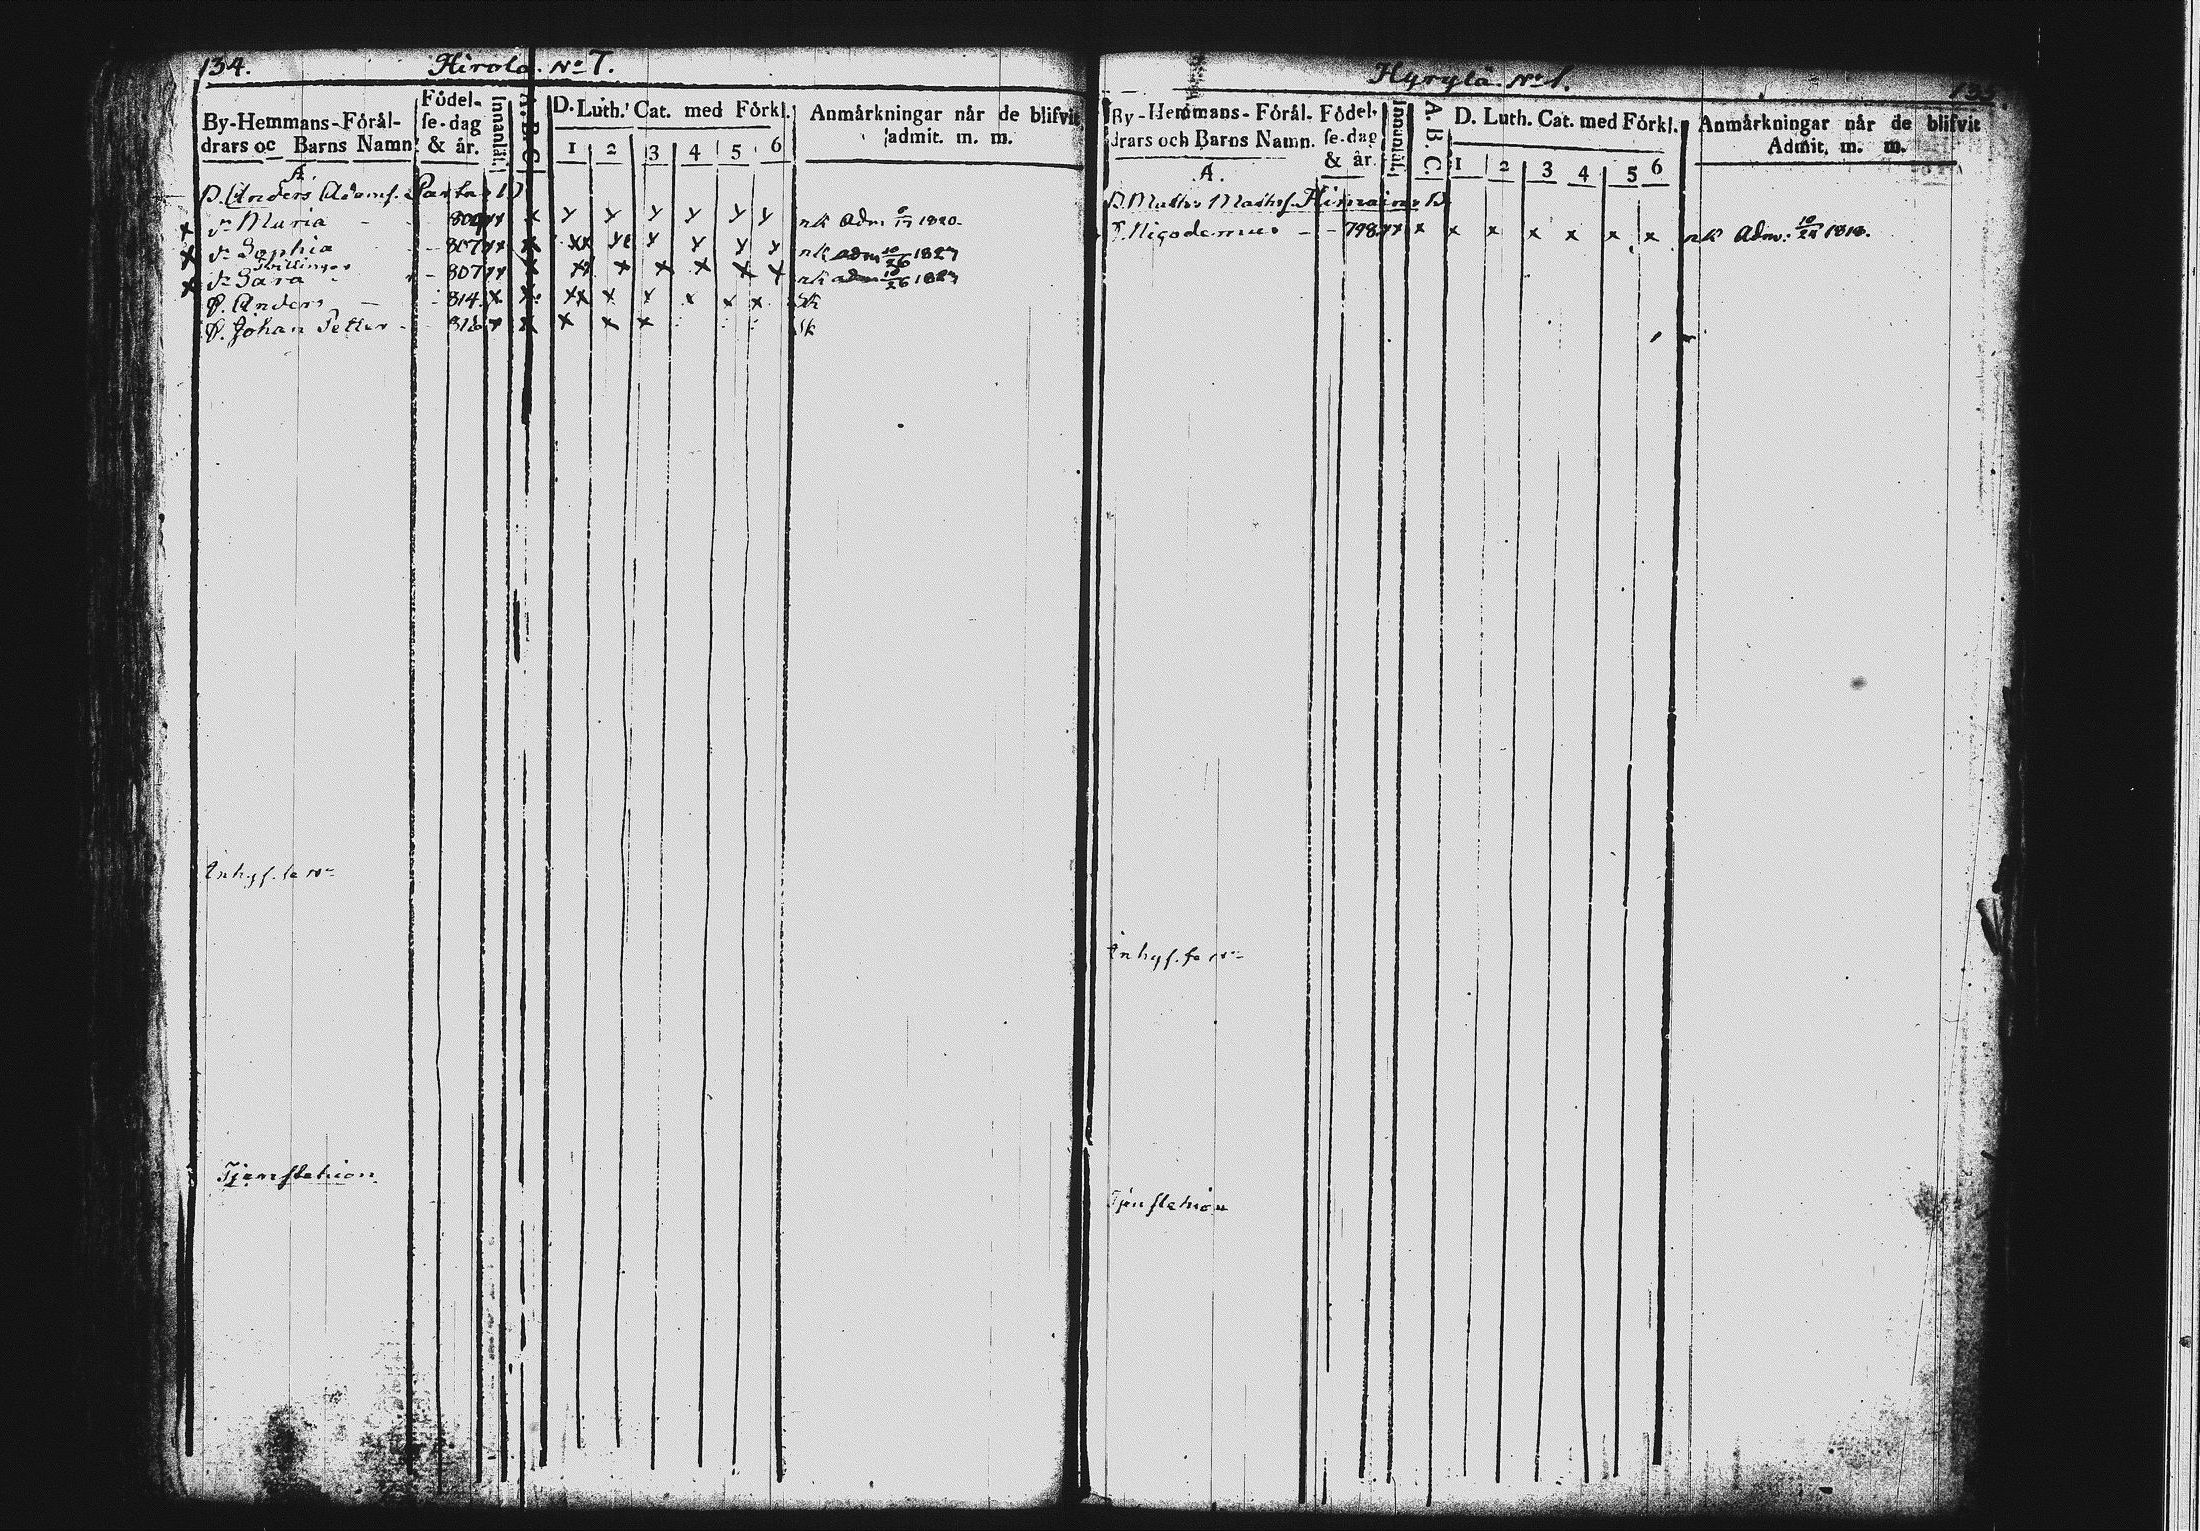 134.
Hirola. No 7.
By-Hemmans-Förål-
drars oc Barns Namn.
Födel-
se-dag
& år.
Innanläs.
A.B.C.
D. Luth. Cat. med Förkl.
1 2 3 4 5 6
Anmärkningar når de blifvit
admit. m. m.
A.
B. Anders Adamss. Parta
dr Maria - - 80 x x y y y y y y nk adm 1820.
dr Sophia - 807 x x x xx y y y y y nk adm 10/26 1823
Tvillingar
dr Sara - 807 x x xx x x x x y nk adm 10/26 1823
S. Anders - - 814 x x xx x x x x x sk
S. Johan Petter - - 818 x x x x x sk
Inhys. se No
Tjenstehion
Hyrylä. No 1.
135.
By-Hemmans-Förål-
drars och Barns Namn.
Födel-
se-dag
& år.
Innanläs.
A.B.C.
D. Luth. Cat. med Förkl.
1 2 3 4 5 6
Anmärkningar når de blifvit
Admit. m. m.
A.
B. Matts Matss.
S. Nigodemus - - 798 x x x x x x x x nk Adm: 1818.
Inhys. se No
Tjenstehion